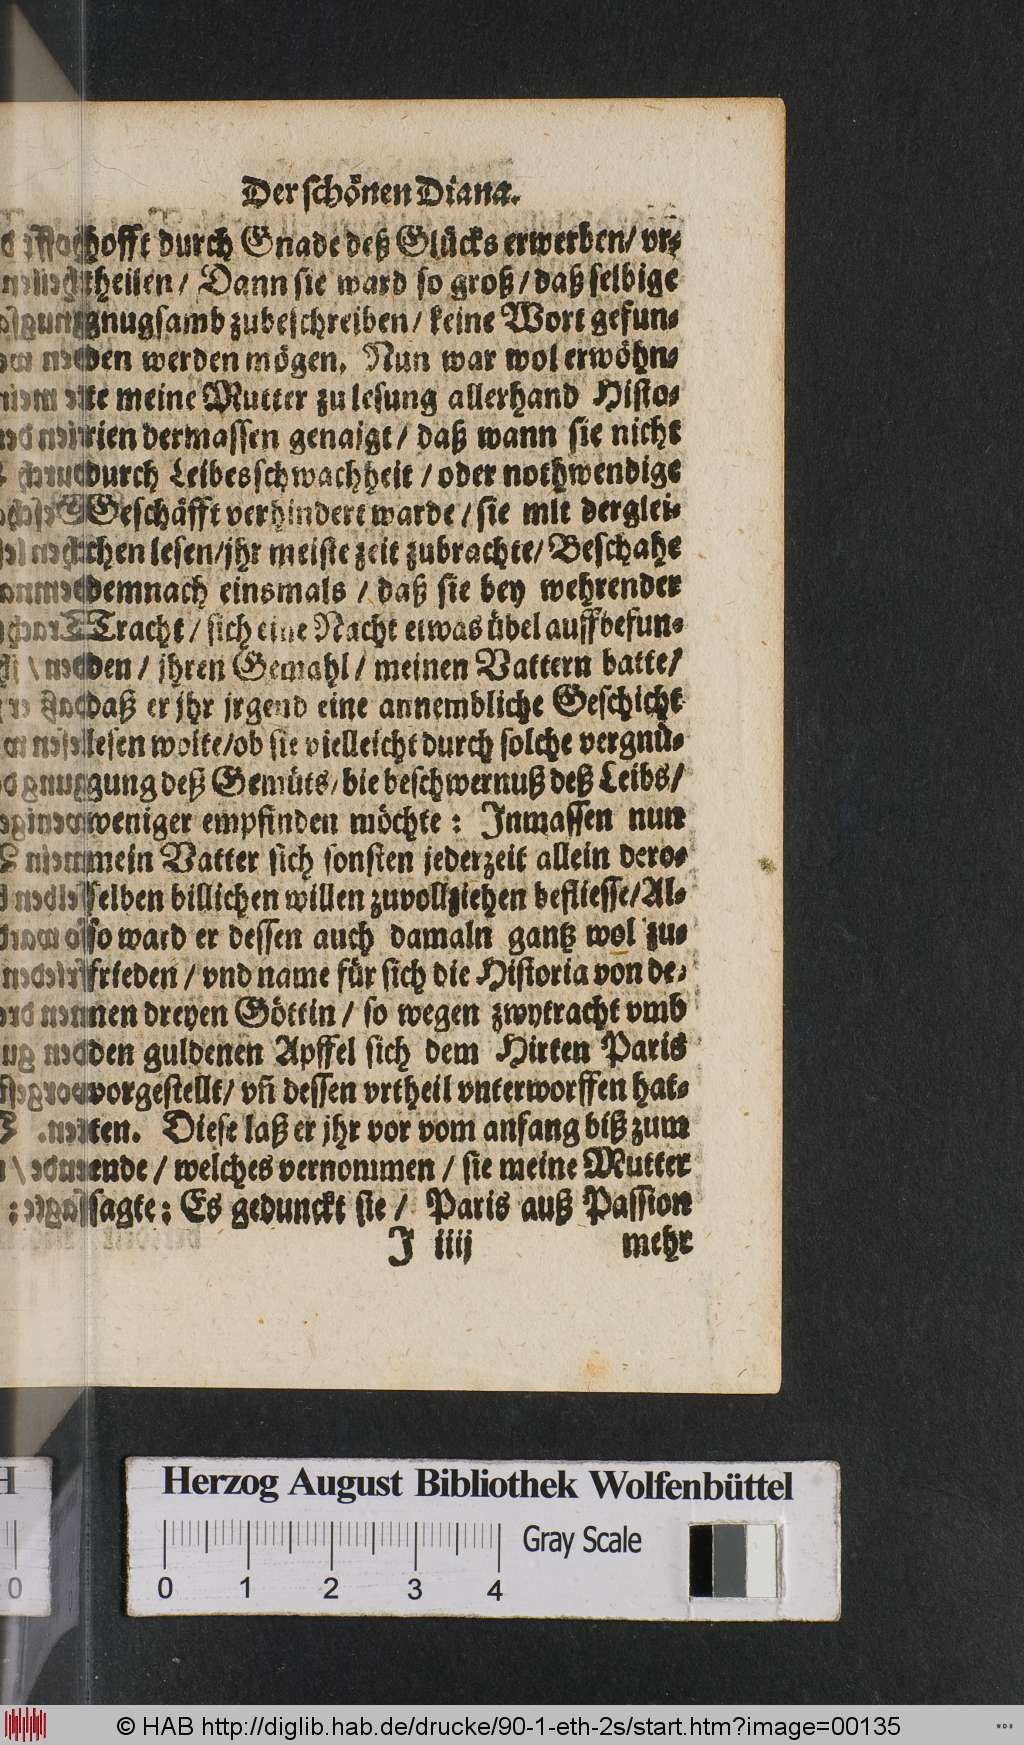 Der schönen Diana.
hofft durch Gnade deß Glücks erwerben/ vr-
theilen/ Dann sie ward so groß/ daß selbige
gnugsamb zubeschreiben/ keine Wort gefun-
den werden mögen. Nun war wol erwöhn-
te meine Mutter zu lesung allerhand Histo-
rien dermassen genaigt/ daß wann sie nicht
durch Leibesschwachheit/ oder nothwendige
Geschäfft verhindert warde/ sie mit derglei-
chen lesen/ jhr meiste zeit zubrachte/ Beschahe
demnach einsmals/ daß sie bey wehrender
Tracht/ sich eine Nacht etwas übel auffbefun-
den/ jhren Gemahl/ meinen Vattern batte/
daß er jhr jrgend eine annembliche Geschicht
lesen wolte/ ob sie vielleicht durch solche vergnü-
gung deß Gemüts/ die beschwernuß deß Leibs/
weniger empfinden möchte: Inmassen nun
mein Vatter sich sonsten jederzeit allein dero-
selben billichen willen zuvollziehen befliesse/ Al-
so ward er dessen auch damaln gantz wol zu-
frieden/ vnd name für sich die Historia von de-
nen dreyen Göttin/ so wegen zwytracht vmb
den guldenen Apffel sich dem Hirten Paris
vorgestellt/ vñ dessen vrtheil vnterworffen hat-
ten. Diese laß er jhr vor vom anfang biß zum
ende/ welches vernommen/ sie meine Mutter
sagte: Es gedunckt sie/ Paris auß Passion
J iiij mehr
H
Herzog August Bibliothek Wolfenbüttel
Gray Scale
0 0 1 2 3 4
© HAB http://diglib.hab.de/drucke/90-1-eth-2s/start.htm?image=00135